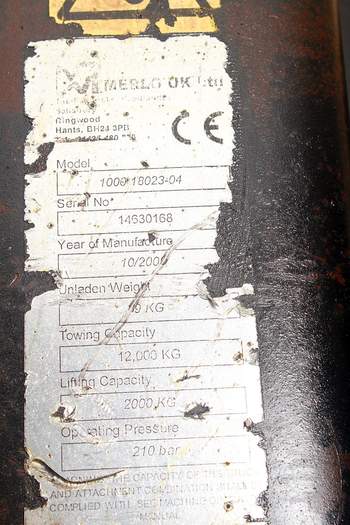 MERLO UK Ltd
Ringwood
Hants, BH24 3PB
CE
Model
1000 18023-04
Serial No
14630168
Year of Manufacture
10/2000
Unladen Weight
KG
Towing Capacity
12,000 KG
Lifting Capacity
2000 KG
Operating Pressure
210 bar
THE CAPACITY OF THE
AND ATTACHMENT COMBINATION
COMPLIED WITH SEE MACHINE
MANUAL